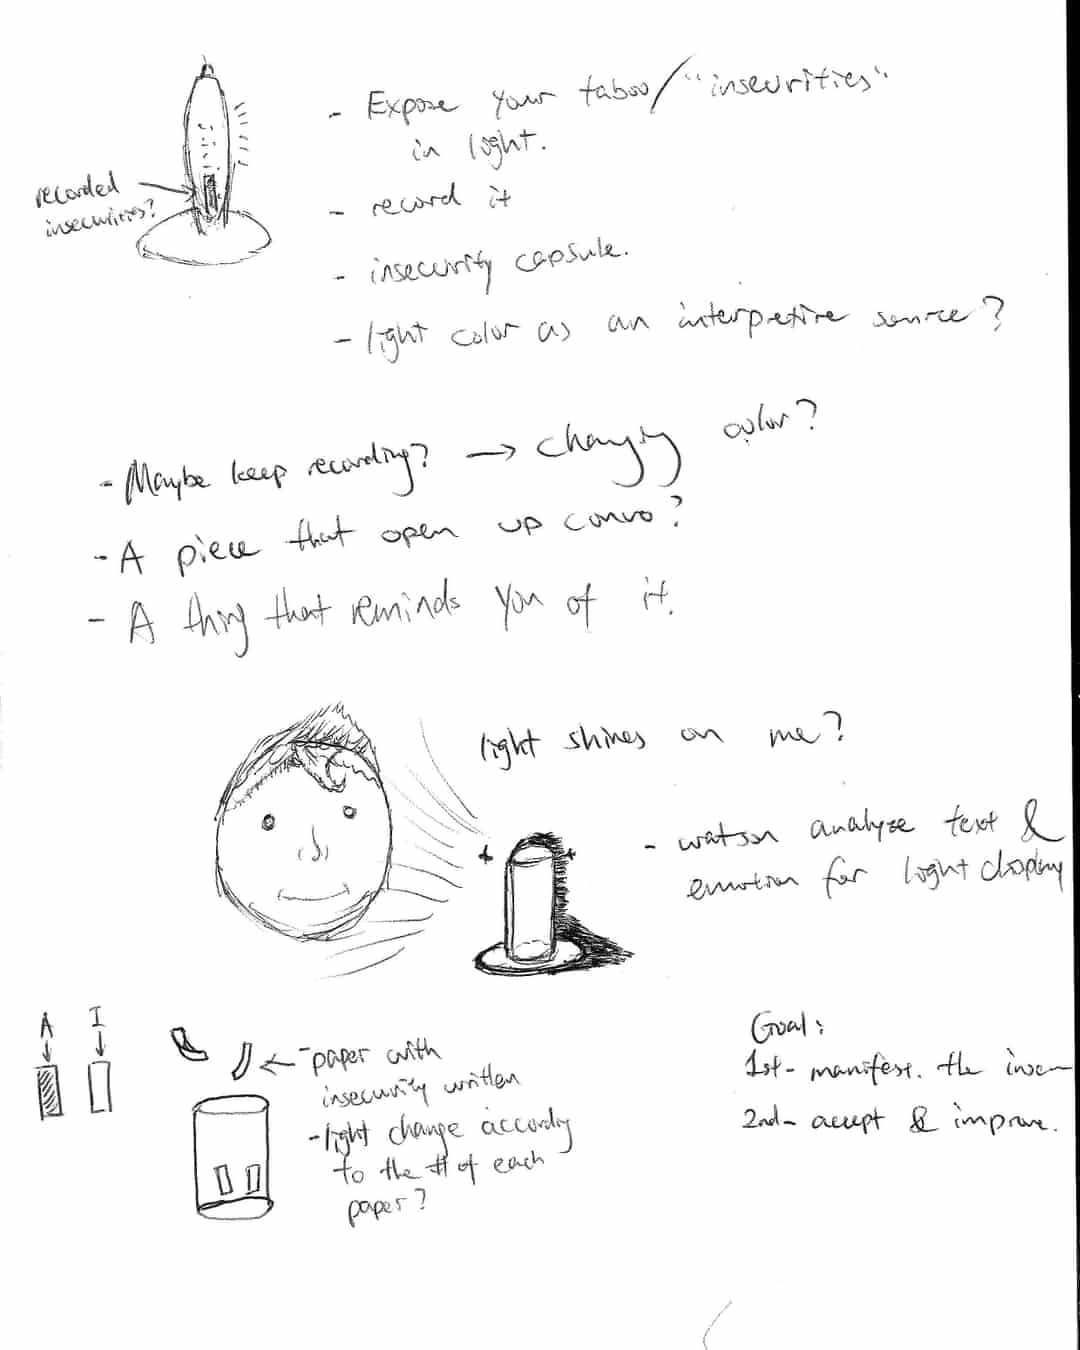 - Expose your taboo/"insecurities"
in light.
recorded
insecurities?
- record it
- insecurity capsule.
- light color as an interpretive source?
- Maybe keep recording? → changing color?
- A piece that open up convo?
- A thing that reminds you of it.
light shines on me?
- watson analyze text &
emotion for light display
A I
- paper with
insecurity written
- light change according
to the # of each
paper?
Goal:
1st - manifest. the insecu
2nd - accept & improve.